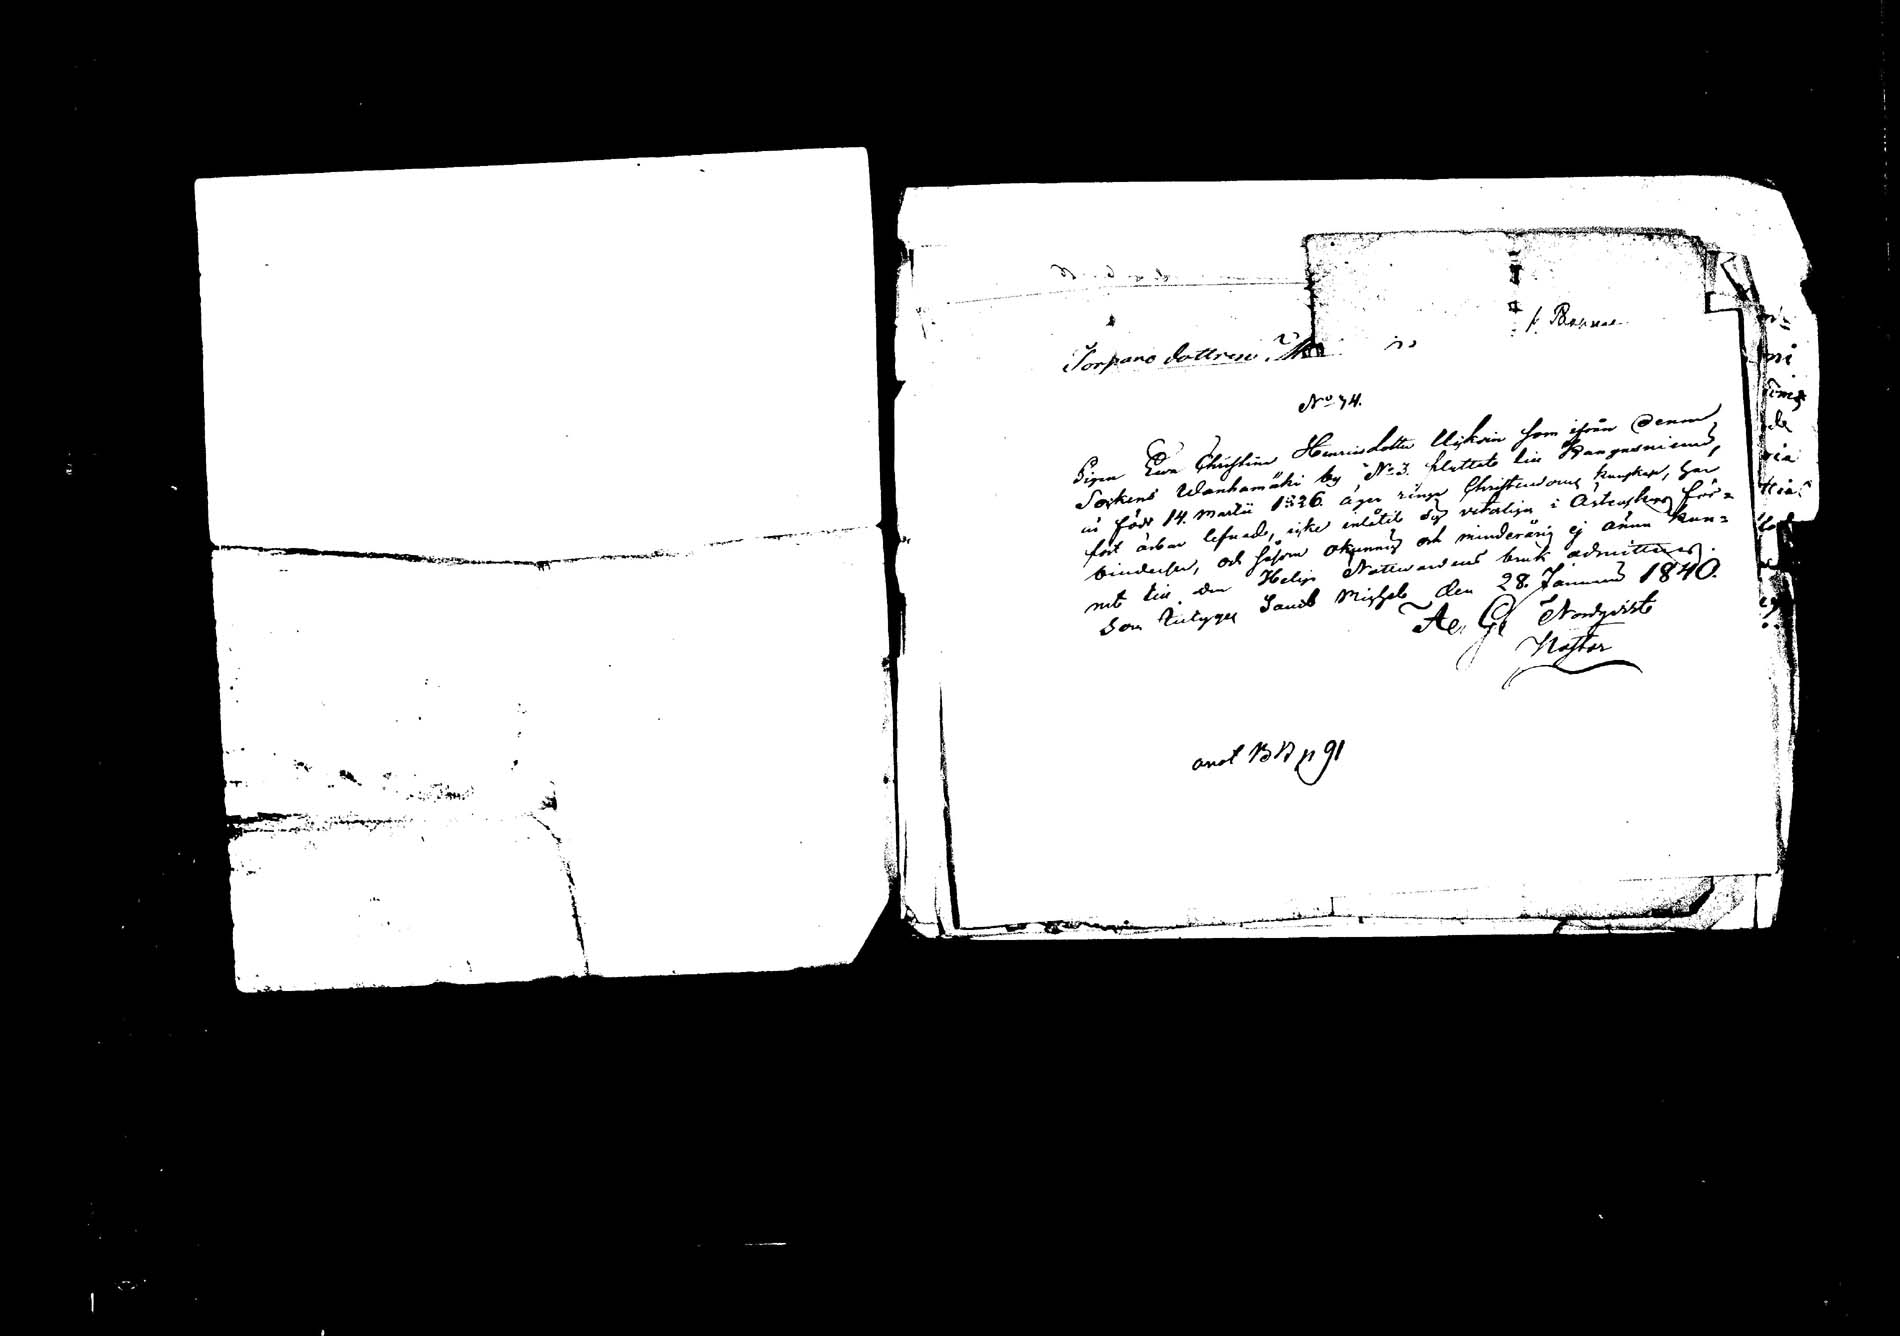 Torpare dottren
No 74.
Pigan Ewa Christina Henricsdotter Uiskoin som ifrån denna
Sockens Wanhamäki by, No 3. flyttat till Kangasniemi,
är född 14. Martii 1826. äger ringa Christendoms kunskap, har
fört ärbar lefnad, icke inlåtit sig veterligen i Äktenskaps för=
bindelser, och såsom okunnig och minderårig ej ännu kun=
nat till den Heliga Nattvardens bruk admitteras.
Som intygas Sanct Michels den 28. Januarii 1840.
Nordqvist
Pastor
anot BB p 91